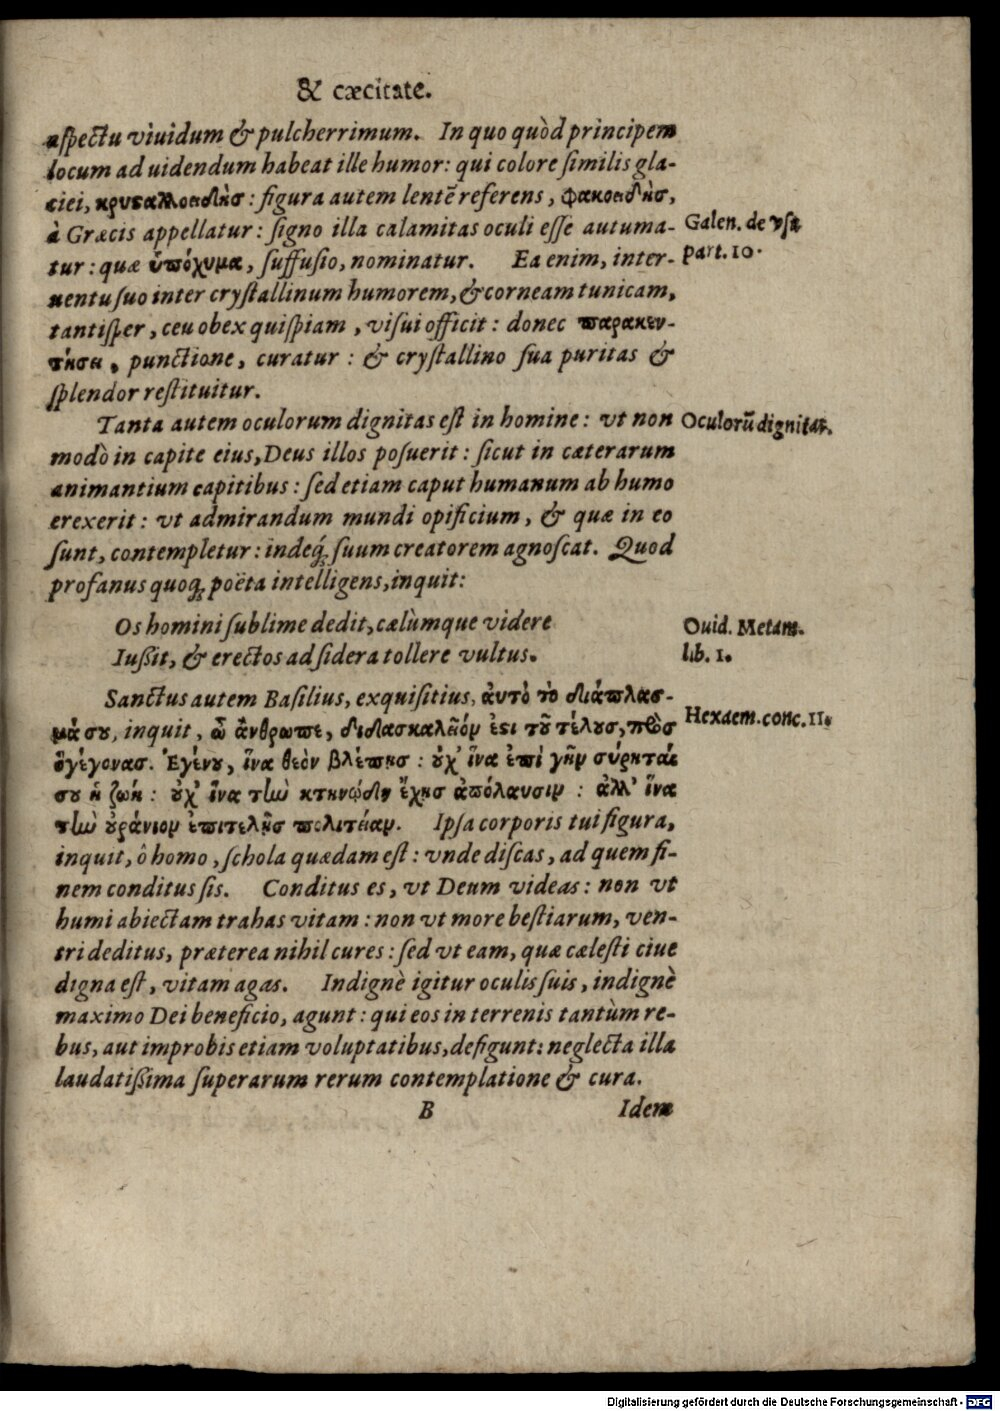 & cæcitate.
aſpectu viuidum & pulcherrimum. In quo quòd principem
locum ad uidendum habeat ille humor: qui colore ſimilis gla-
ciei, κρυσαλλοειδὴσ : figura autem lentē referens, φακοειδὴσ,
à Græcis appellatur: ſigno illa calamitas oculi eſſe autuma-
Galen. de vſu
tur: quæ ὑπόχυμα, ſuffuſio, nominatur. Ea enim, inter-
part. 10.
uentu ſuo inter cryſtallinum humorem, & corneam tunicam,
tantiſper, ceu obex quiſpiam, viſui officit: donec παρακεν-
τήσει, punctione, curatur: & cryſtallino ſua puritas &
ſplendor reſtituitur.
Tanta autem oculorum dignitas eſt in homine: vt non
Oculorū dignitas.
modò in capite eius, Deus illos poſuerit: ſicut in cæterarum
animantium capitibus: ſed etiam caput humanum ab humo
erexerit: vt admirandum mundi opificium, & quæ in eo
ſunt, contempletur: indeq́; ſuum creatorem agnoſcat. Quod
profanus quoq; poëta intelligens, inquit:
Os homini ſublime dedit, cælùmque videre
Ouid. Metam.
Iußit, & erectos ad ſidera tollere vultus.
lib. 1.
Sanctus autem Baſilius, exquiſitius, ἀυτὸ τὸ διάπλασ-
μά σου, inquit, ὦ ἄνθρωπε, διδασκαλεῖόν ἐστι τοῦ τέλουσ, πρὸσ
Hexaem. conc. 11.
ὃ γέγονασ. Ἐγένου, ἵνα θεὸν βλέπησ : οὐχ' ἵνα ἐπὶ γῆν σύρηται
σου ἡ ζωή : οὐχ' ἵνα τὴν κτηνώδη ἔχησ ἀπόλαυσιν : ἀλλ' ἵνα
τὴν οὐράνιον ἐπιτελῇσ πολιτείαν. Ipſa corporis tui figura,
inquit, ô homo, ſchola quædam eſt: vnde diſcas, ad quem fi-
nem conditus ſis. Conditus es, vt Deum videas: non vt
humi abiectam trahas vitam: non vt more beſtiarum, ven-
tri deditus, præterea nihil cures: ſed vt eam, quæ cæleſti ciue
digna eſt, vitam agas. Indignè igitur oculis ſuis, indignè
maximo Dei beneficio, agunt: qui eos in terrenis tantùm re-
bus, aut improbis etiam voluptatibus, defigunt: neglecta illa
laudatißima ſuperarum rerum contemplatione & cura.
B Idem
Digitalisierung gefördert durch die Deutsche Forschungsgemeinschaft - DFG